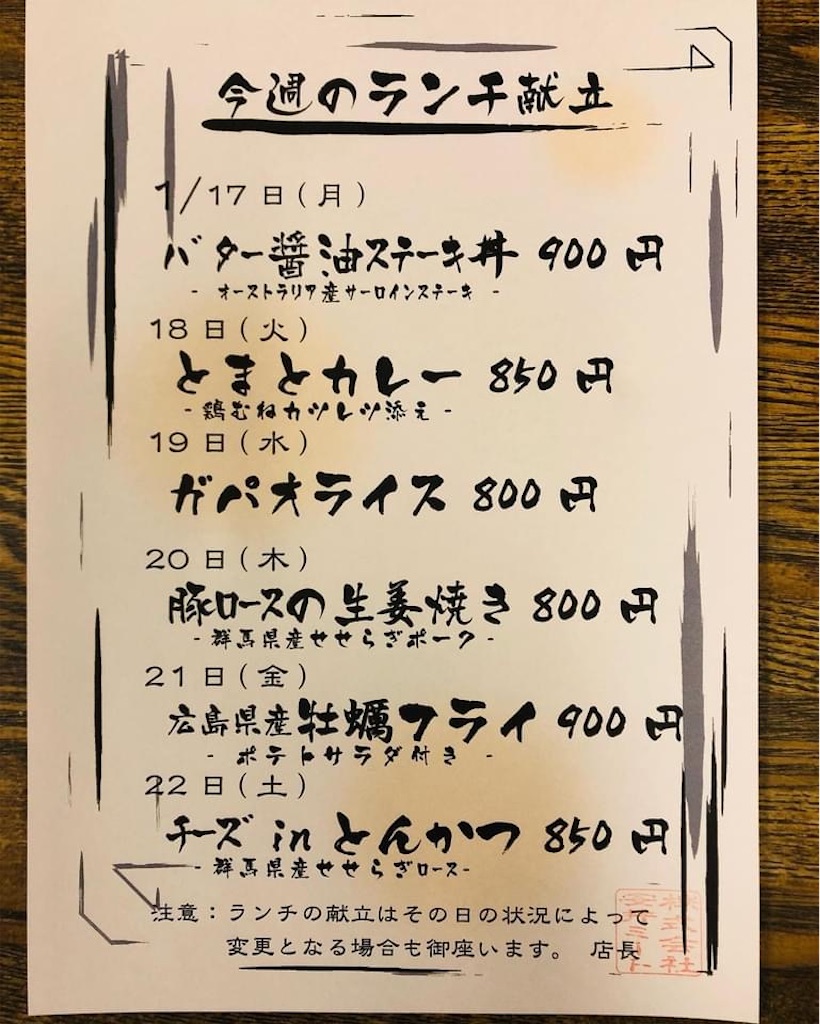 今週のランチ献立
1/17日(月)
バター醤油ステーキ丼 900円
- オーストラリア産サーロインステーキ -
18日(火)
とまとカレー 850円
- 鶏むねカツレツ添え -
19日(水)
ガパオライス 800円
20日(木)
豚ロースの生姜焼き 800円
- 群馬県産せせらぎポーク -
21日(金)
広島県産牡蠣フライ 900円
- ポテトサラダ付き -
22日(土)
チーズ in とんかつ 850円
- 群馬県産せせらぎロース-
注意：ランチの献立はその日の状況によって
変更となる場合も御座います。 店長
株式会社